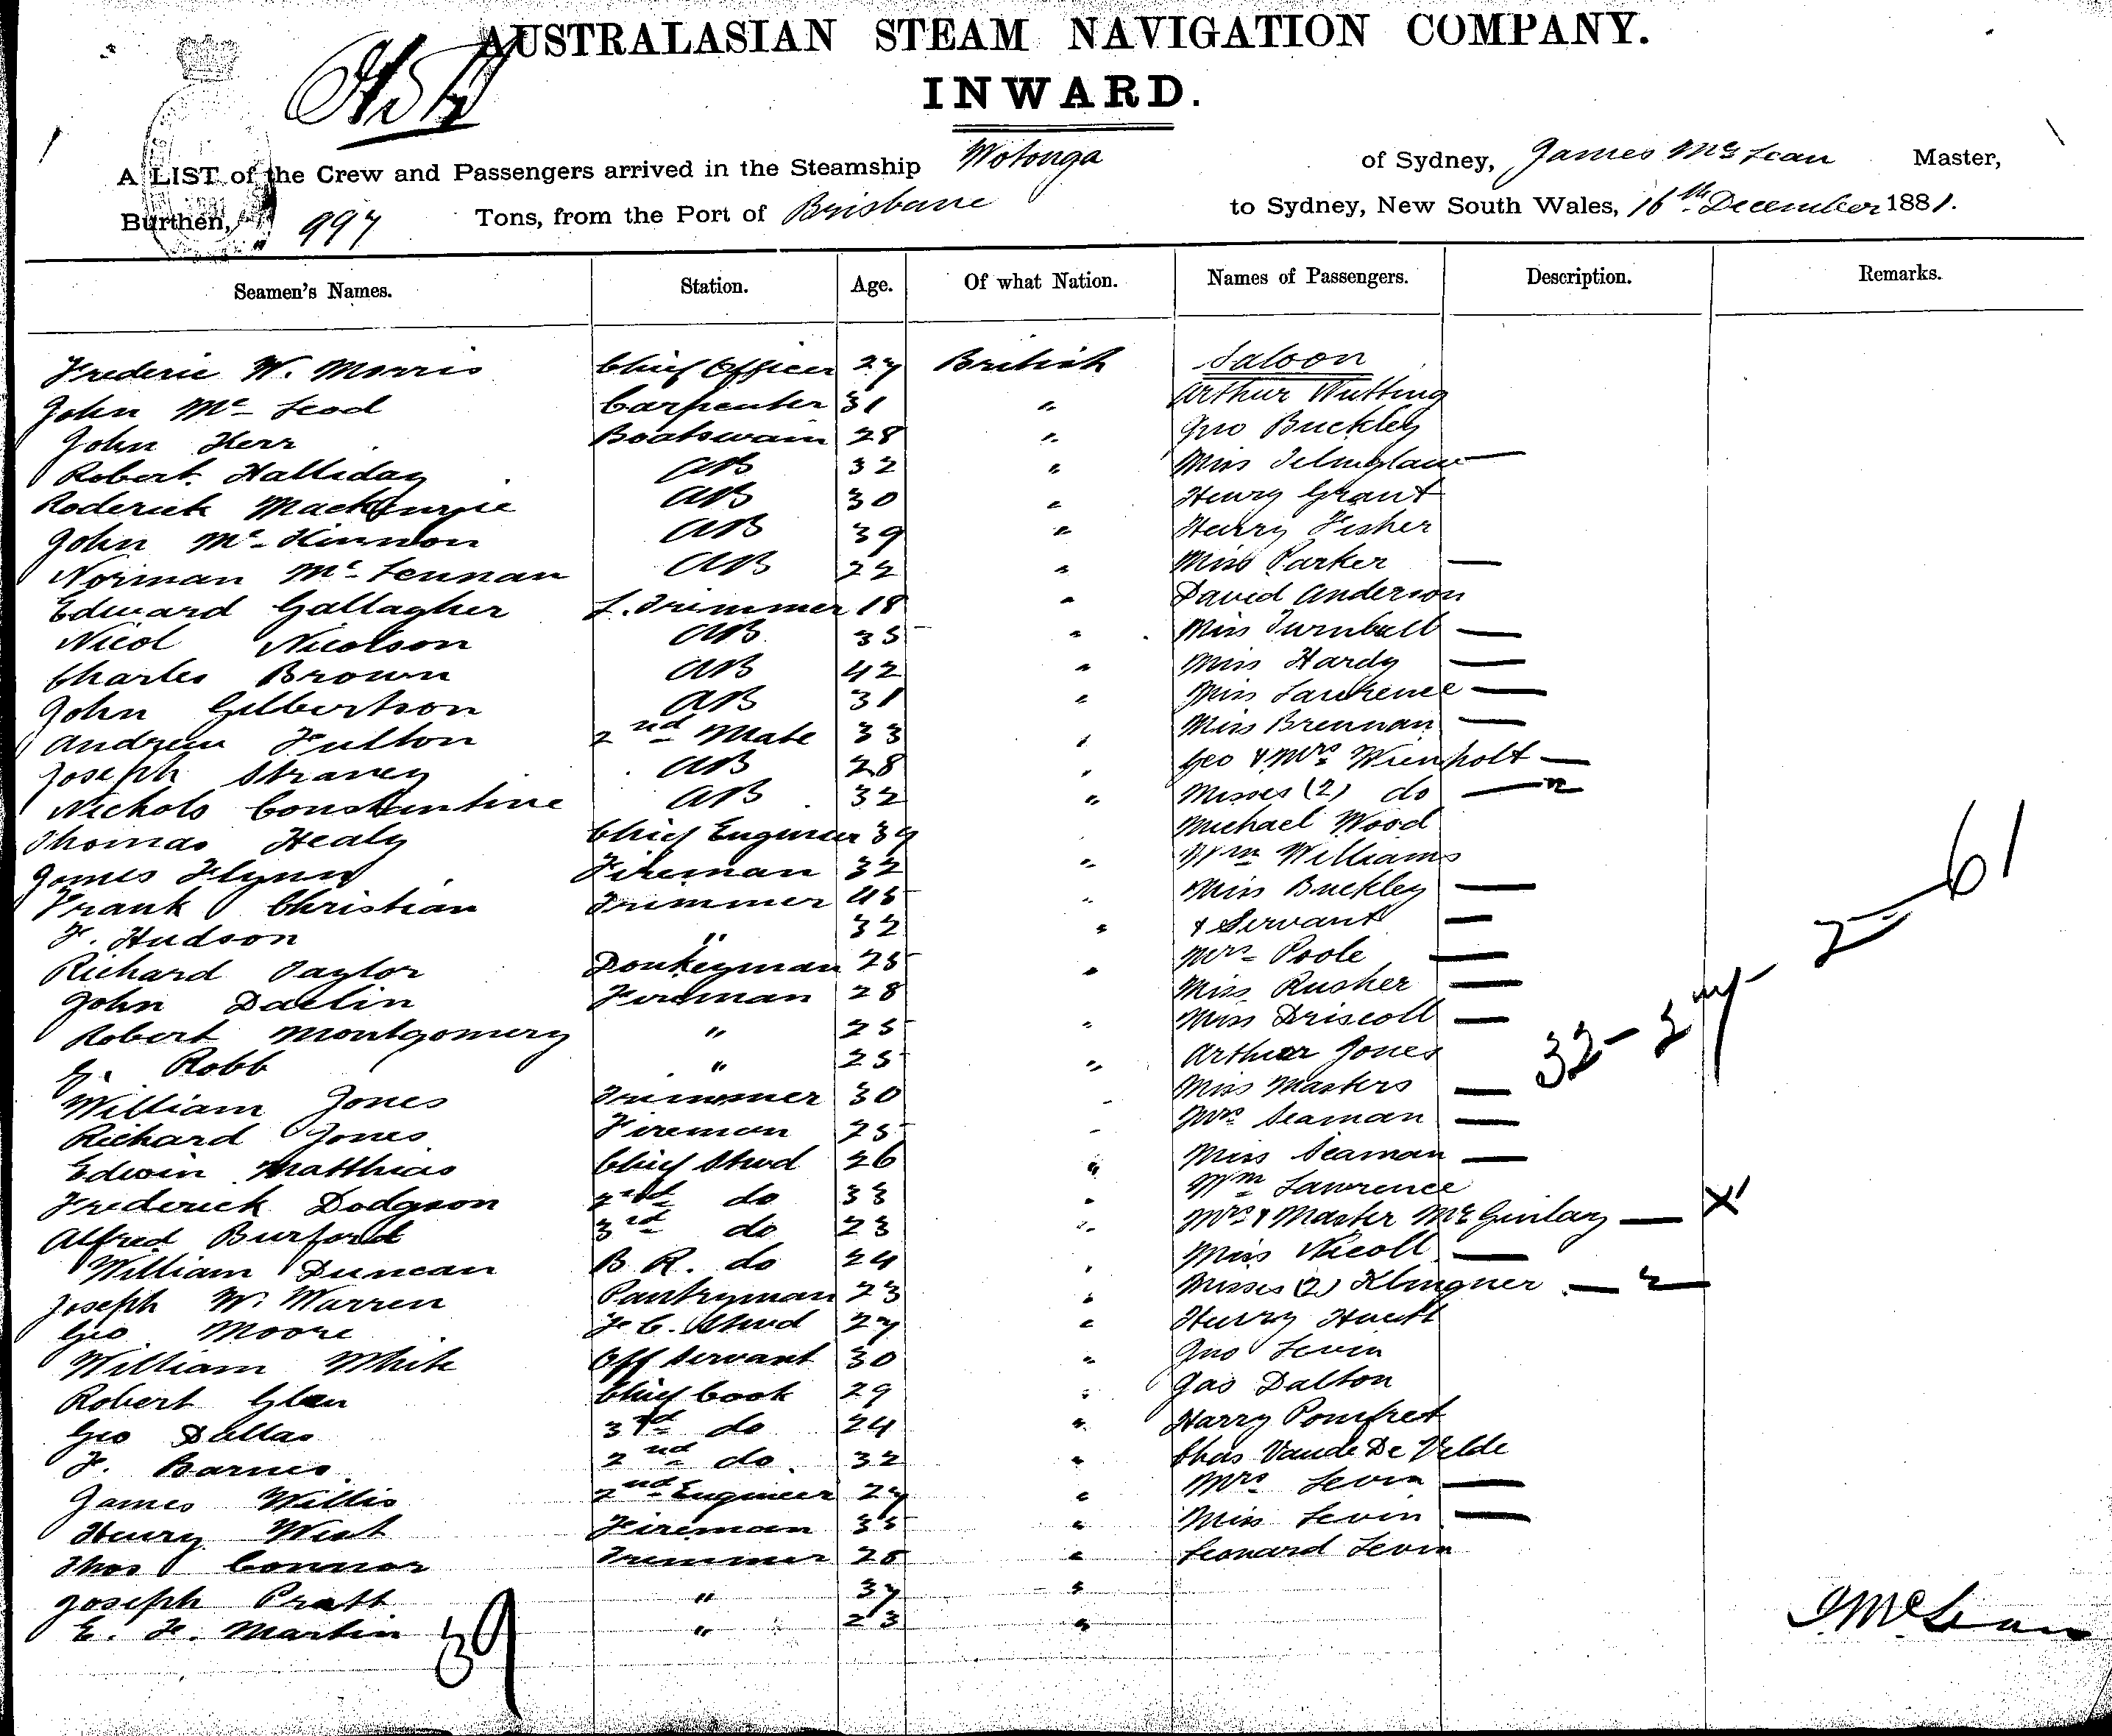 AUSTRALASIAN STEAM NAVIGATION COMPANY.
INWARD.
A LIST of the Crew and Passengers arrived in the Steamship Wotonga of Sydney, James McLean Master,
Burthen, 997 Tons, from the Port of Brisbane to Sydney, New South Wales, 16th December 1881.
Seamen's Names. Station. Age. Of what Nation. Names of Passengers. Description. Remarks.
Frederic W. Morris Chief Officer 27 British Saloon
John Mc Leod Carpenter 31 " Arthur Nutting
John Kerr Boatswain 28 " Jno Buckley
Robert Halliday AB 32 " Miss
Roderick Mackenzie AB 30 " Henry Grant
John Mc Kinnon AB 39 " Harry Fisher
Norman Mc Lennan AB 22 " Miss Parker —
Edward Gallagher L. Trimmer 18 " David Anderson
Nicol Nicolson AB 35 " Miss Turnbull —
Charles Brown AB 42 " Miss Hardy —
John Gilbertson AB 31 " Miss Lawrence —
Andrew Fulton 2nd Mate 33 " Miss Brennan —
Joseph Straney AB 28 " Geo & Mrs Wienholt —
Nichols Constantine AB 32 " Misses (2) do — 2
Thomas Healy Chief Engineer 39 Michael Wood
James Flynn Fireman 32 " Wm Williams
Frank Christian Trimmer 45 " Miss Buckley —
F. Hudson " 32 " & Servant —
Richard Taylor Donkeyman 25 " Mrs Poole —
John Dallin Fireman 28 Miss Rusher —
Robert Montgomery " 25 " Miss Driscoll —
G. Robb " 25 " Arthur Jones
William Jones Trimmer 30 " Miss Masters —
Richard Jones Fireman 25 " Mrs Seaman —
Edwin Matthias Chief Stwd 26 " Miss Seaman —
Frederick Dodgson 2nd do 33 " Wm Lawrence
Alfred Burford 3rd do 23 " Mrs & Master McGinlay — X
William Duncan B. R. do 24 " Miss Nicoll —
Joseph W. Warren Pantryman 23 " Misses (2) Klingner — 2 —
Geo Moore F. C. Stwd 27 " Harry
William White Off Servant 30 " Jno Levin
Robert Glen Chief Cook 29 " Jas Dalton
Geo Dallas 3rd do 24 " Harry Pomfret
F. Barnes 2nd do. 32 " Chas Vande De Velde
James Willis 2nd Engineer 27 " Mrs Levin —
Henry West Fireman 35 " Miss Levin —
Thos Connor Trimmer 25 " Leonard Levin
Joseph Pratt " 37 "
E. F. Martin " 23 "
39
61
J. McLean